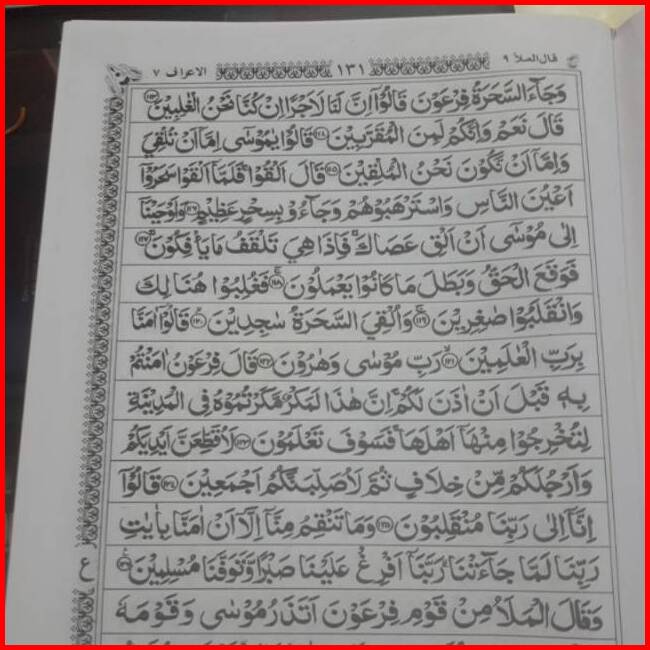 قال الملأ ٩ ١٣١ الاعراف ٧
وَجَآءَ السَّحَرَةُ فِرْعَوْنَ قَالُوْٓا اِنَّ لَنَا لَاَجْرًا اِنْ كُنَّا نَحْنُ الْغٰلِبِيْنَ ۝۱۱۳
قَالَ نَعَمْ وَاِنَّكُمْ لَمِنَ الْمُقَرَّبِيْنَ ۝۱۱۴ قَالُوْا يٰمُوْسٰٓى اِمَّآ اَنْ تُلْقِيَ
وَاِمَّآ اَنْ نَّكُوْنَ نَحْنُ الْمُلْقِيْنَ ۝۱۱۵ قَالَ اَلْقُوْا فَلَمَّآ اَلْقَوْا سَحَرُوْٓا
اَعْيُنَ النَّاسِ وَاسْتَرْهَبُوْهُمْ وَجَآءُوْ بِسِحْرٍ عَظِيْمٍ ۝۱۱۶ وَاَوْحَيْنَآ
اِلٰى مُوْسٰٓى اَنْ اَلْقِ عَصَاكَ فَاِذَا هِيَ تَلْقَفُ مَا يَاْفِكُوْنَ ۝۱۱۷
فَوَقَعَ الْحَقُّ وَبَطَلَ مَا كَانُوْا يَعْمَلُوْنَ ۝۱۱۸ فَغُلِبُوْا هُنَالِكَ
وَانْقَلَبُوْا صٰغِرِيْنَ ۝۱۱۹ وَاُلْقِيَ السَّحَرَةُ سٰجِدِيْنَ ۝۱۲۰ قَالُوْٓا اٰمَنَّا
بِرَبِّ الْعٰلَمِيْنَ ۝۱۲۱ رَبِّ مُوْسٰى وَهٰرُوْنَ ۝۱۲۲ قَالَ فِرْعَوْنُ اٰمَنْتُمْ
بِهٖ قَبْلَ اَنْ اٰذَنَ لَكُمْ اِنَّ هٰذَا لَمَكْرٌ مَّكَرْتُمُوْهُ فِى الْمَدِيْنَةِ
لِتُخْرِجُوْا مِنْهَآ اَهْلَهَا فَسَوْفَ تَعْلَمُوْنَ ۝۱۲۳ لَاُقَطِّعَنَّ اَيْدِيَكُمْ
وَاَرْجُلَكُمْ مِّنْ خِلَافٍ ثُمَّ لَاُصَلِّبَنَّكُمْ اَجْمَعِيْنَ ۝۱۲۴ قَالُوْٓا
اِنَّآ اِلٰى رَبِّنَا مُنْقَلِبُوْنَ ۝۱۲۵ وَمَا تَنْقِمُ مِنَّآ اِلَّآ اَنْ اٰمَنَّا بِاٰيٰتِ
رَبِّنَا لَمَّا جَآءَتْنَا رَبَّنَآ اَفْرِغْ عَلَيْنَا صَبْرًا وَّتَوَفَّنَا مُسْلِمِيْنَ ۝۱۲۶
ع
وَقَالَ الْمَلَاُ مِنْ قَوْمِ فِرْعَوْنَ اَتَذَرُ مُوْسٰى وَقَوْمَهٗ